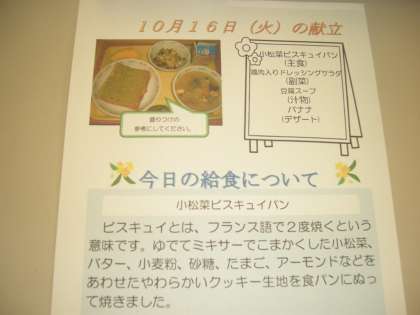 10月16日（火）の献立
小松菜ビスキュイパン
(主食)
鶏肉入りドレッシングサラダ
(副菜)
豆腐スープ
(汁物)
バナナ
(デザート)
盛りつけの
参考にしてください。
今日の給食について
小松菜ビスキュイパン
ビスキュイとは、フランス語で２度焼くという
意味です。ゆでてミキサーでこまかくした小松菜、
バター、小麦粉、砂糖、たまご、アーモンドなどを
あわせたやわらかいクッキー生地を食パンにぬっ
て焼きました。